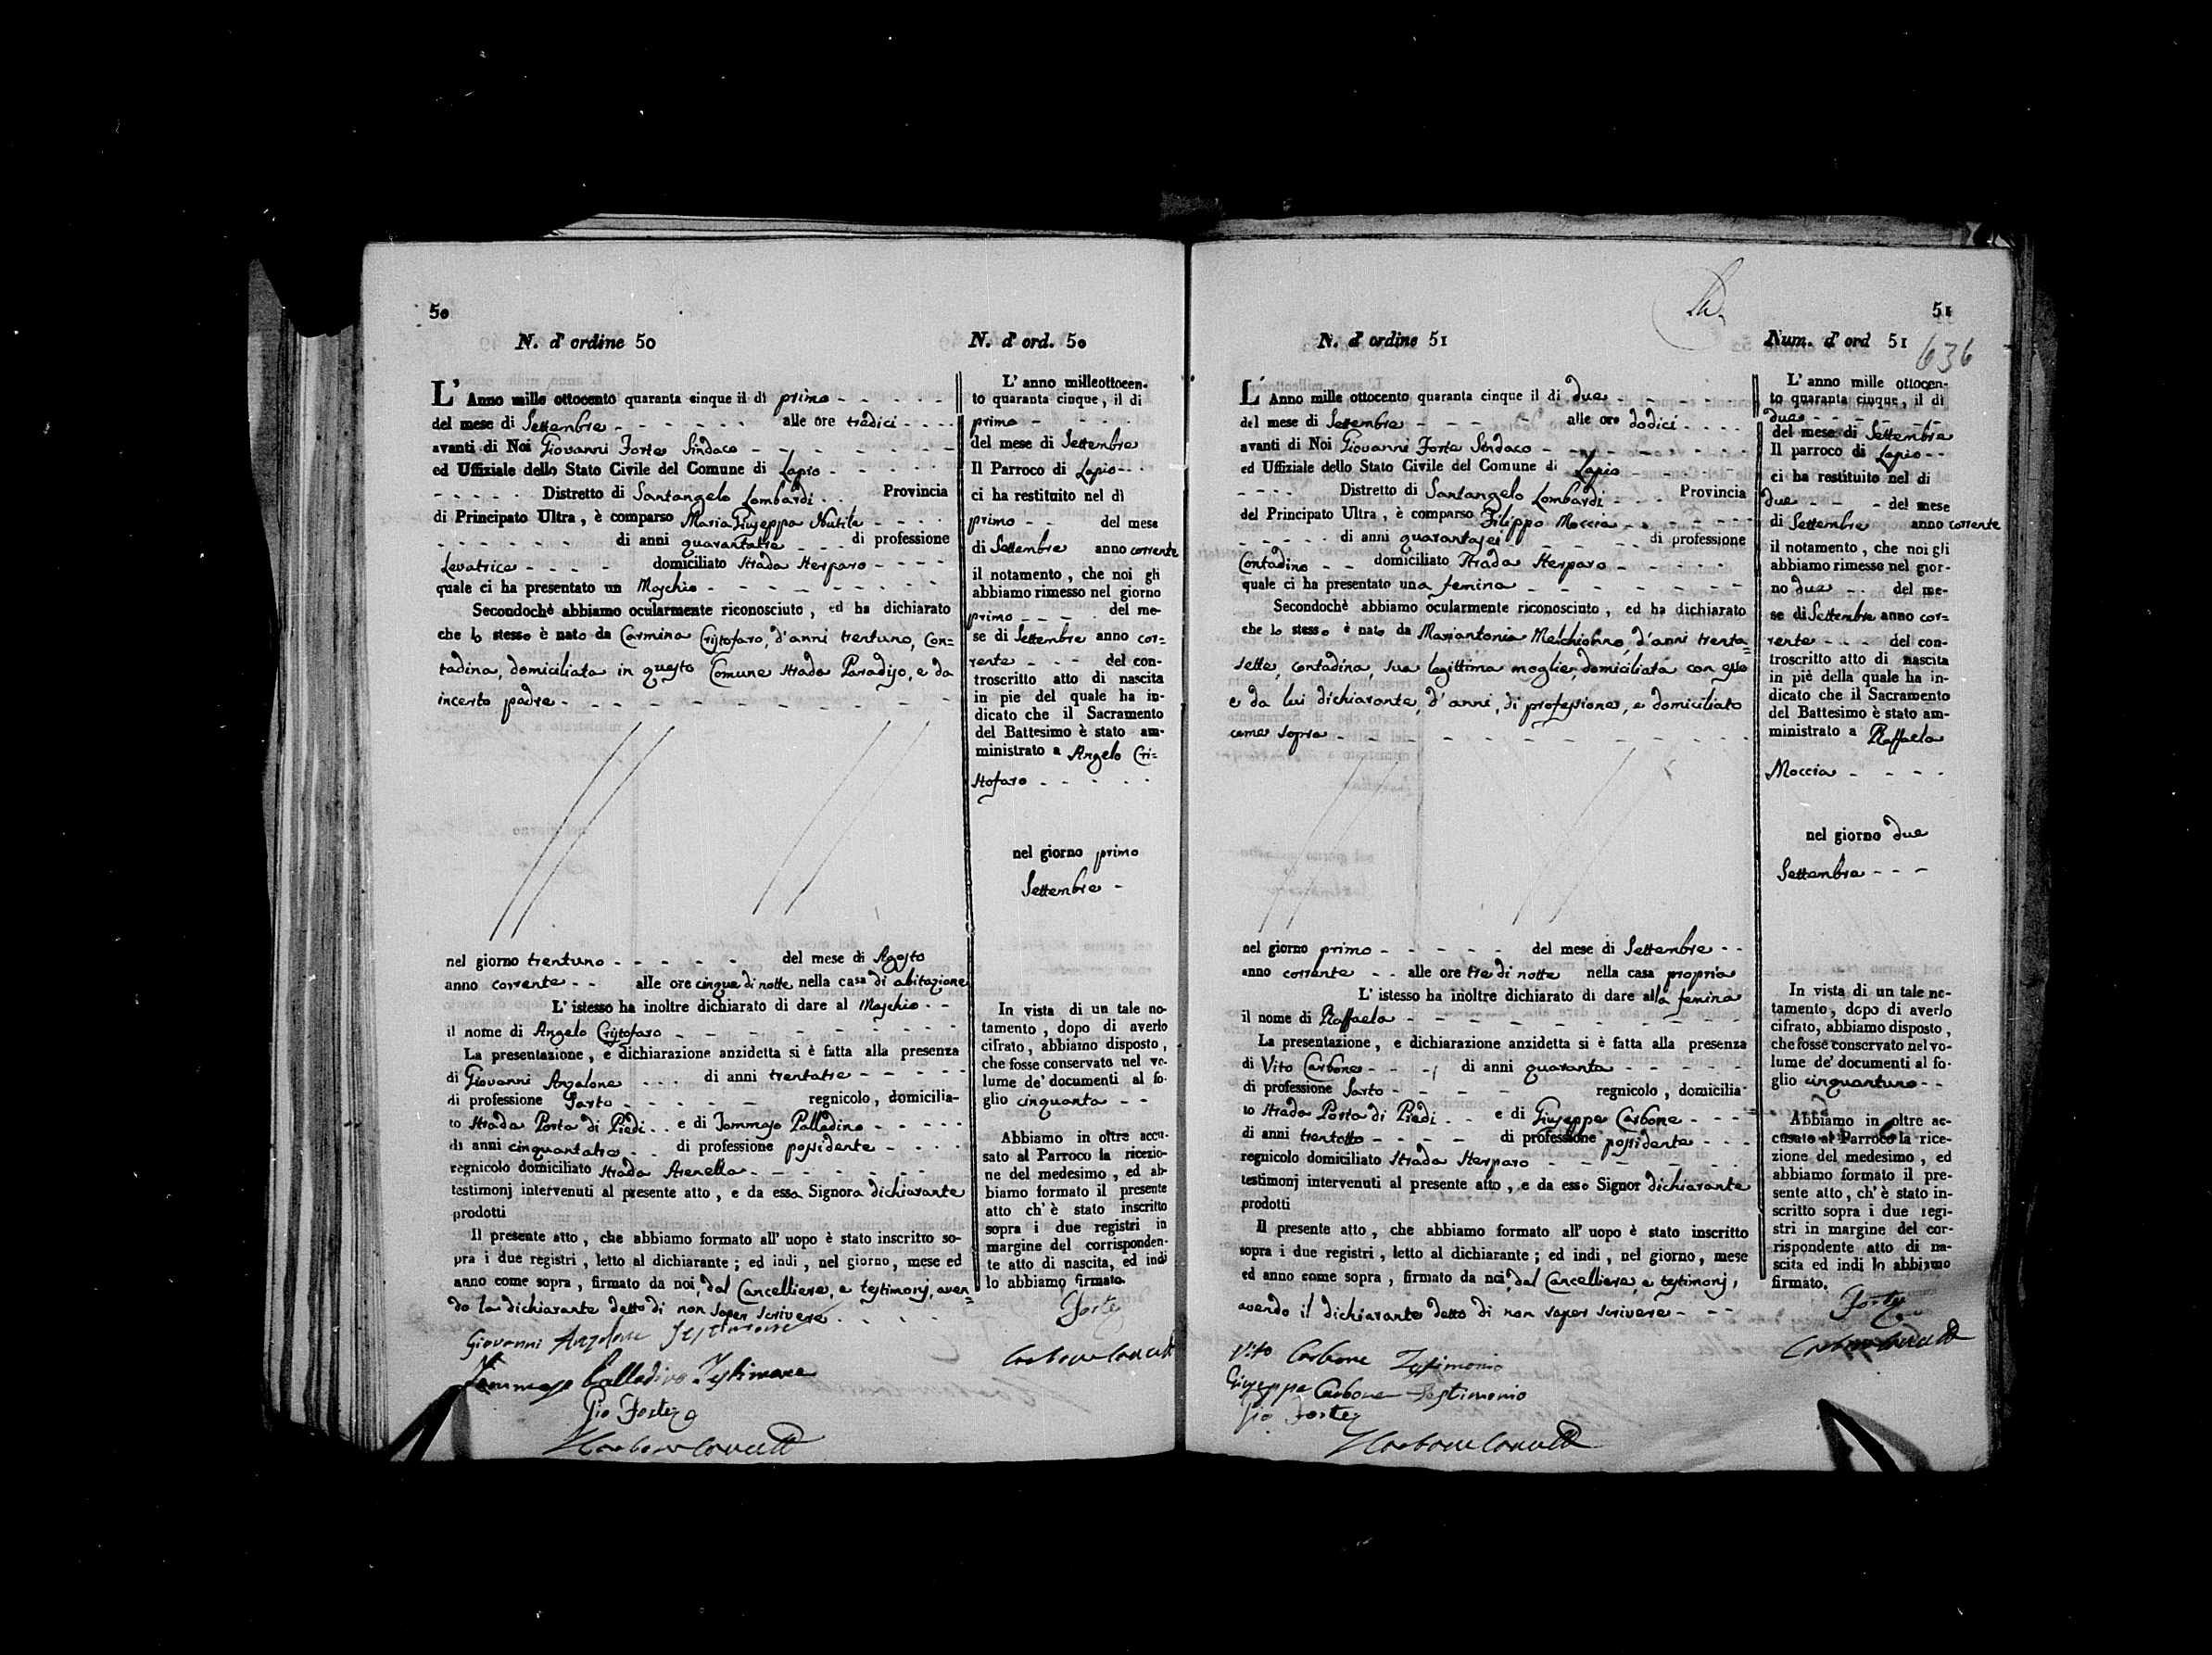 50
N. d' ordine 50
L' Anno mille ottocento quaranta cinque il dì primo - - - - -
del mese di Settembre - - - - - - alle ore tredici - - - -
avanti di Noi Giovanni Forte Sindaco - - - - - - -
ed Uffiziale dello Stato Civile del Comune di Lapio - - - - - -
- - - - - Distretto di Santangelo Lombardi - - Provincia
di Principato Ultra, è comparso Maria Giuseppa Nutile - - - -
- - - - - - di anni quarantatre - - - di professione
Levatrice - - - - domiciliato Strada Sterparo - - - -
quale ci ha presentato un Maschio - - - - - - -
Secondochè abbiamo ocularmente riconosciuto, ed ha dichiarato
che lo stesso è nato da Carmina Cristofaro, d'anni trentuno, Con=
tadina, domiciliata in questo Comune Strada Paradiso, e da
incerto padre - - - - - - - - - -
nel giorno trentuno - - - - - del mese di Agosto
anno corrente - - alle ore cinque di notte nella casa di abitazione
L' istesso ha inoltre dichiarato di dare al Maschio - -
il nome di Angelo Cristofaro - - - - - - - - -
La presentazione, e dichiarazione anzidetta si è fatta alla presenza
di Giovanni Anzalone - - - di anni trentatre - - - - -
di professione Sarto - - - - - regnicolo, domicilia-
to Strada Porta di Piedi - - e di Tommaso Palladino - - - - -
di anni cinquantatre - - di professione possidente - - - -
regnicolo domiciliato Strada Arenella - - - - - - -
testimonj intervenuti al presente atto, e da essa Signora dichiarante
prodotti
Il presente atto, che abbiamo formato all' uopo è stato inscritto so-
pra i due registri, letto al dichiarante; ed indi, nel giorno, mese ed
anno come sopra, firmato da noi, dal Cancelliere, e testimonj, aven=
do la dichiarante detto di non saper scrivere - - - -
Giovanni Anzalone Testimone
Tommaso Palladino Testimone
Gio Forte
N. d' ord. 50
L' anno milleottocen-
to quaranta cinque, il dì
primo - - - - -
del mese di Settembre
Il Parroco di Lapio - - -
ci ha restituito nel dì
primo - - del mese
di Settembre anno corrente
il notamento, che noi gli
abbiamo rimesso nel giorno
primo - - - del me-
se di Settembre anno cor=
rente - - - del con-
troscritto atto di nascita
in pie del quale ha in-
dicato che il Sacramento
del Battesimo è stato am-
ministrato a Angelo Cri=
stofaro - - - - -
nel giorno primo
Settembre -
In vista di un tale no-
tamento, dopo di averlo
cifrato, abbiamo disposto,
che fosse conservato nel vo-
lume de' documenti al fo-
glio cinquanta - -
Abbiamo in oltre accu-
sato al Parroco la ricezio-
ne del medesimo, ed ab-
biamo formato il presente
atto ch' è stato inscritto
sopra i due registri in
margine del corrisponden-
te atto di nascita, ed indi
lo abbiamo firmato.
Forte
51
636
N. d' ordine 51
L' Anno mille ottocento quaranta cinque il dì due - - - - -
del mese di Settembre - - - - alle ore dodici - - - -
avanti di Noi Giovanni Forte Sindaco - - - - - - -
ed Uffiziale dello Stato Civile del Comune di Lapio - - - - -
- - - - Distretto di Santangelo Lombardi - - - Provincia
del Principato Ultra, è comparso Filippo Moccia - - - - - -
- - - - - di anni quarantasei - - - - di professione
Contadino - - domiciliato Strada Sterparo - - - - -
quale ci ha presentato una femina - - - - - - -
Secondochè abbiamo ocularmente riconosciuto, ed ha dichiarato
che lo stesso è nato da Mariantonia Melchionno, d'anni trenta=
sette, contadina, sua legittima moglie, domiciliata con esso
e da lui dichiarante, d'anni, di professione, e domiciliato
come sopra - - - - - - - - - -
nel giorno primo - - - - - del mese di Settembre - -
anno corrente - - alle ore tre di notte nella casa propria
L' istesso ha inoltre dichiarato di dare alla femina
il nome di Raffaela - - - - - - - - -
La presentazione, e dichiarazione anzidetta si è fatta alla presenza
di Vito Carbone - - - di anni quaranta - - - - -
di professione Sarto - - - - - regnicolo, domicilia-
to Strada Porta di Piedi - - e di Giuseppe Carbone - - - -
di anni trentotto - - - - di professione possidente - - -
regnicolo domiciliato Strada Sterparo - - - - - - -
testimonj intervenuti al presente atto, e da esso Signor dichiarante
prodotti
Il presente atto, che abbiamo formato all' uopo è stato inscritto
sopra i due registri, letto al dichiarante; ed indi, nel giorno, mese
ed anno come sopra, firmato da noi, dal Cancelliere, e testimonj,
avendo il dichiarante detto di non saper scrivere - - -
Vito Carbone Testimonio
Giuseppe Carbone Testimonio
Gio Forte
Num. d' ord 51
L' anno mille ottocen-
to quaranta cinque, il dì
due - - - - -
del mese di Settembre
Il parroco di Lapio - -
ci ha restituito nel dì
due - - - del mese
di Settembre anno corrente
il notamento, che noi gli
abbiamo rimesso nel gior-
no due - - del me-
se di Settembre anno cor=
rente - - - del con-
troscritto atto di nascita
in piè della quale ha in-
dicato che il Sacramento
del Battesimo è stato am-
ministrato a Raffaela
Moccia - - - -
nel giorno due
Settembre - - -
In vista di un tale no-
tamento, dopo di averlo
cifrato, abbiamo disposto,
che fosse conservato nel vo-
lume de' documenti al fo-
glio cinquantuno - -
Abbiamo in oltre ac-
cusato al Parroco la rice-
zione del medesimo, ed
abbiamo formato il pre-
sente atto, ch' è stato in-
scritto sopra i due regi-
stri in margine del cor-
rispondente atto di na-
scita ed indi lo abbiamo
firmato.
Forte